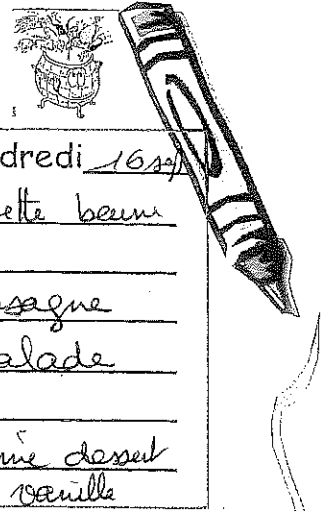 dredi 16 sep
ette beurre
sagne
alade
me dessert
vanille